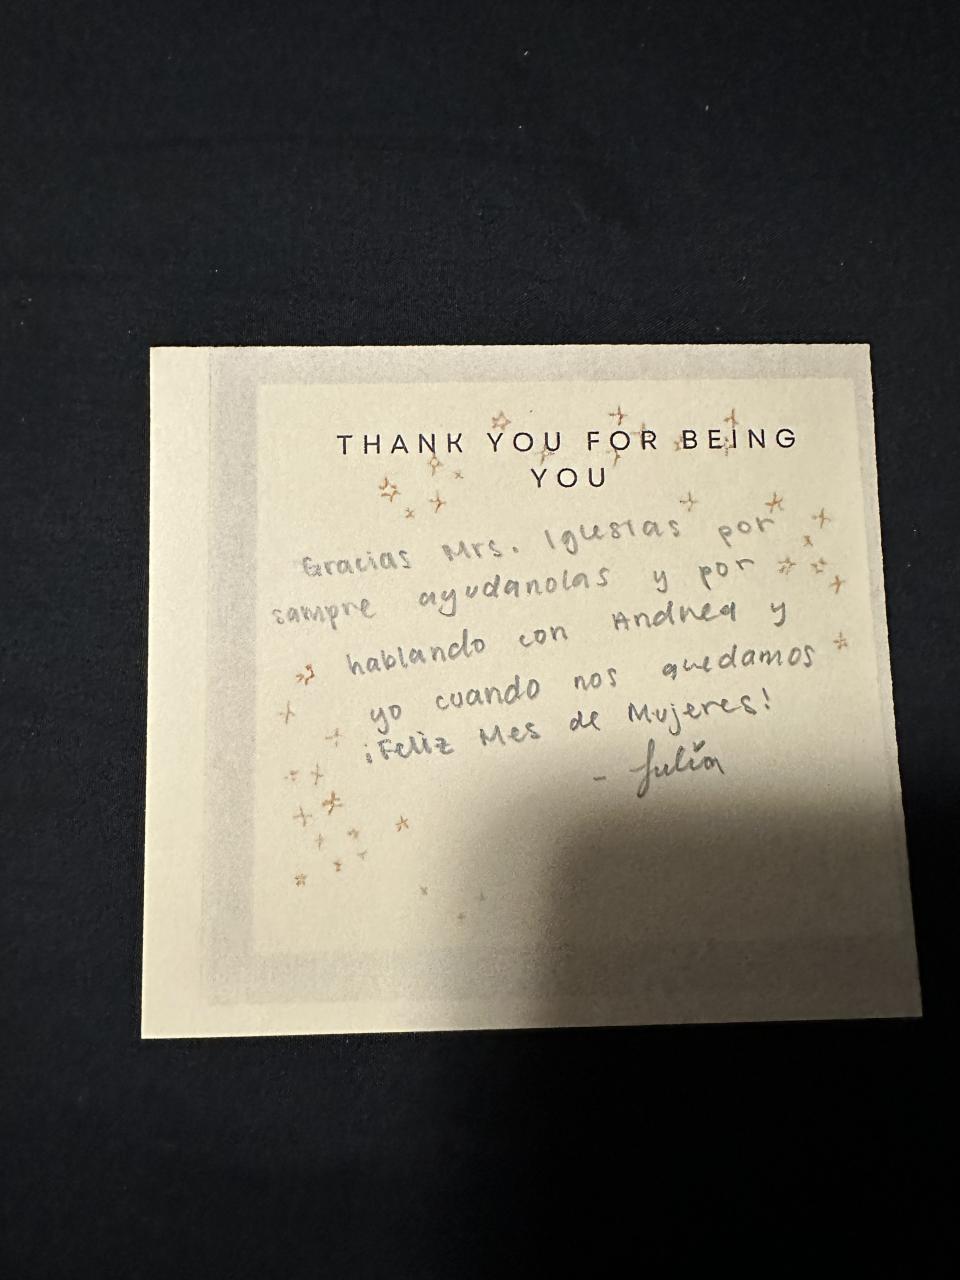 THANK YOU FOR BEING
YOU
Gracias Mrs. Iglesias por
sampre ayudanolas y por
hablando con Andrea y
yo cuando nos quedamos
¡Feliz Mes de Mujeres!
- Julia